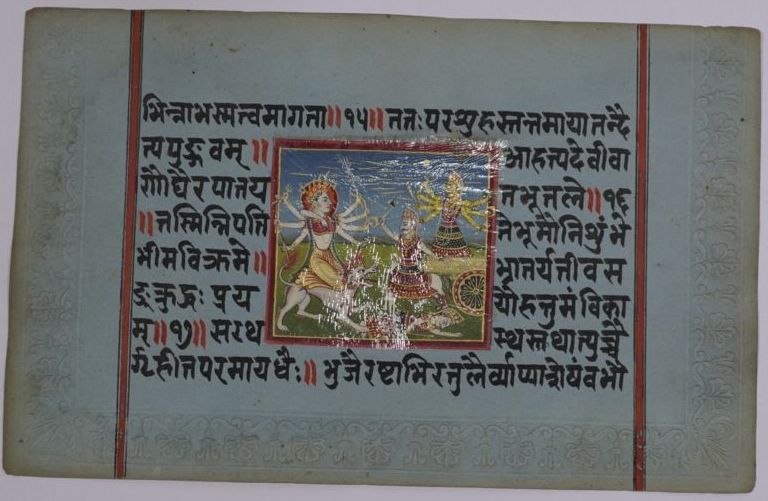 भिन्नाभस्मत्वमागता॥१५॥ततःपरशुहस्तन्तमायातन्दै
त्यपुङ्गवम्॥ आहत्यदेवीवा
णौघैरपातय तभूतले॥१६
॥तस्मिन्निपति तेभूमौनिशुंभे
भीमविक्रमे॥ भ्रातर्यतीवस
ङ्क्रुद्धः प्रय यौहन्तुमंविका
म्॥१७॥सरथ स्थस्तथात्युच्चै
र्गृहीतपरमायुधैः॥ भुजैरष्टाभिरतुलैर्व्याप्याशेषंवभौ